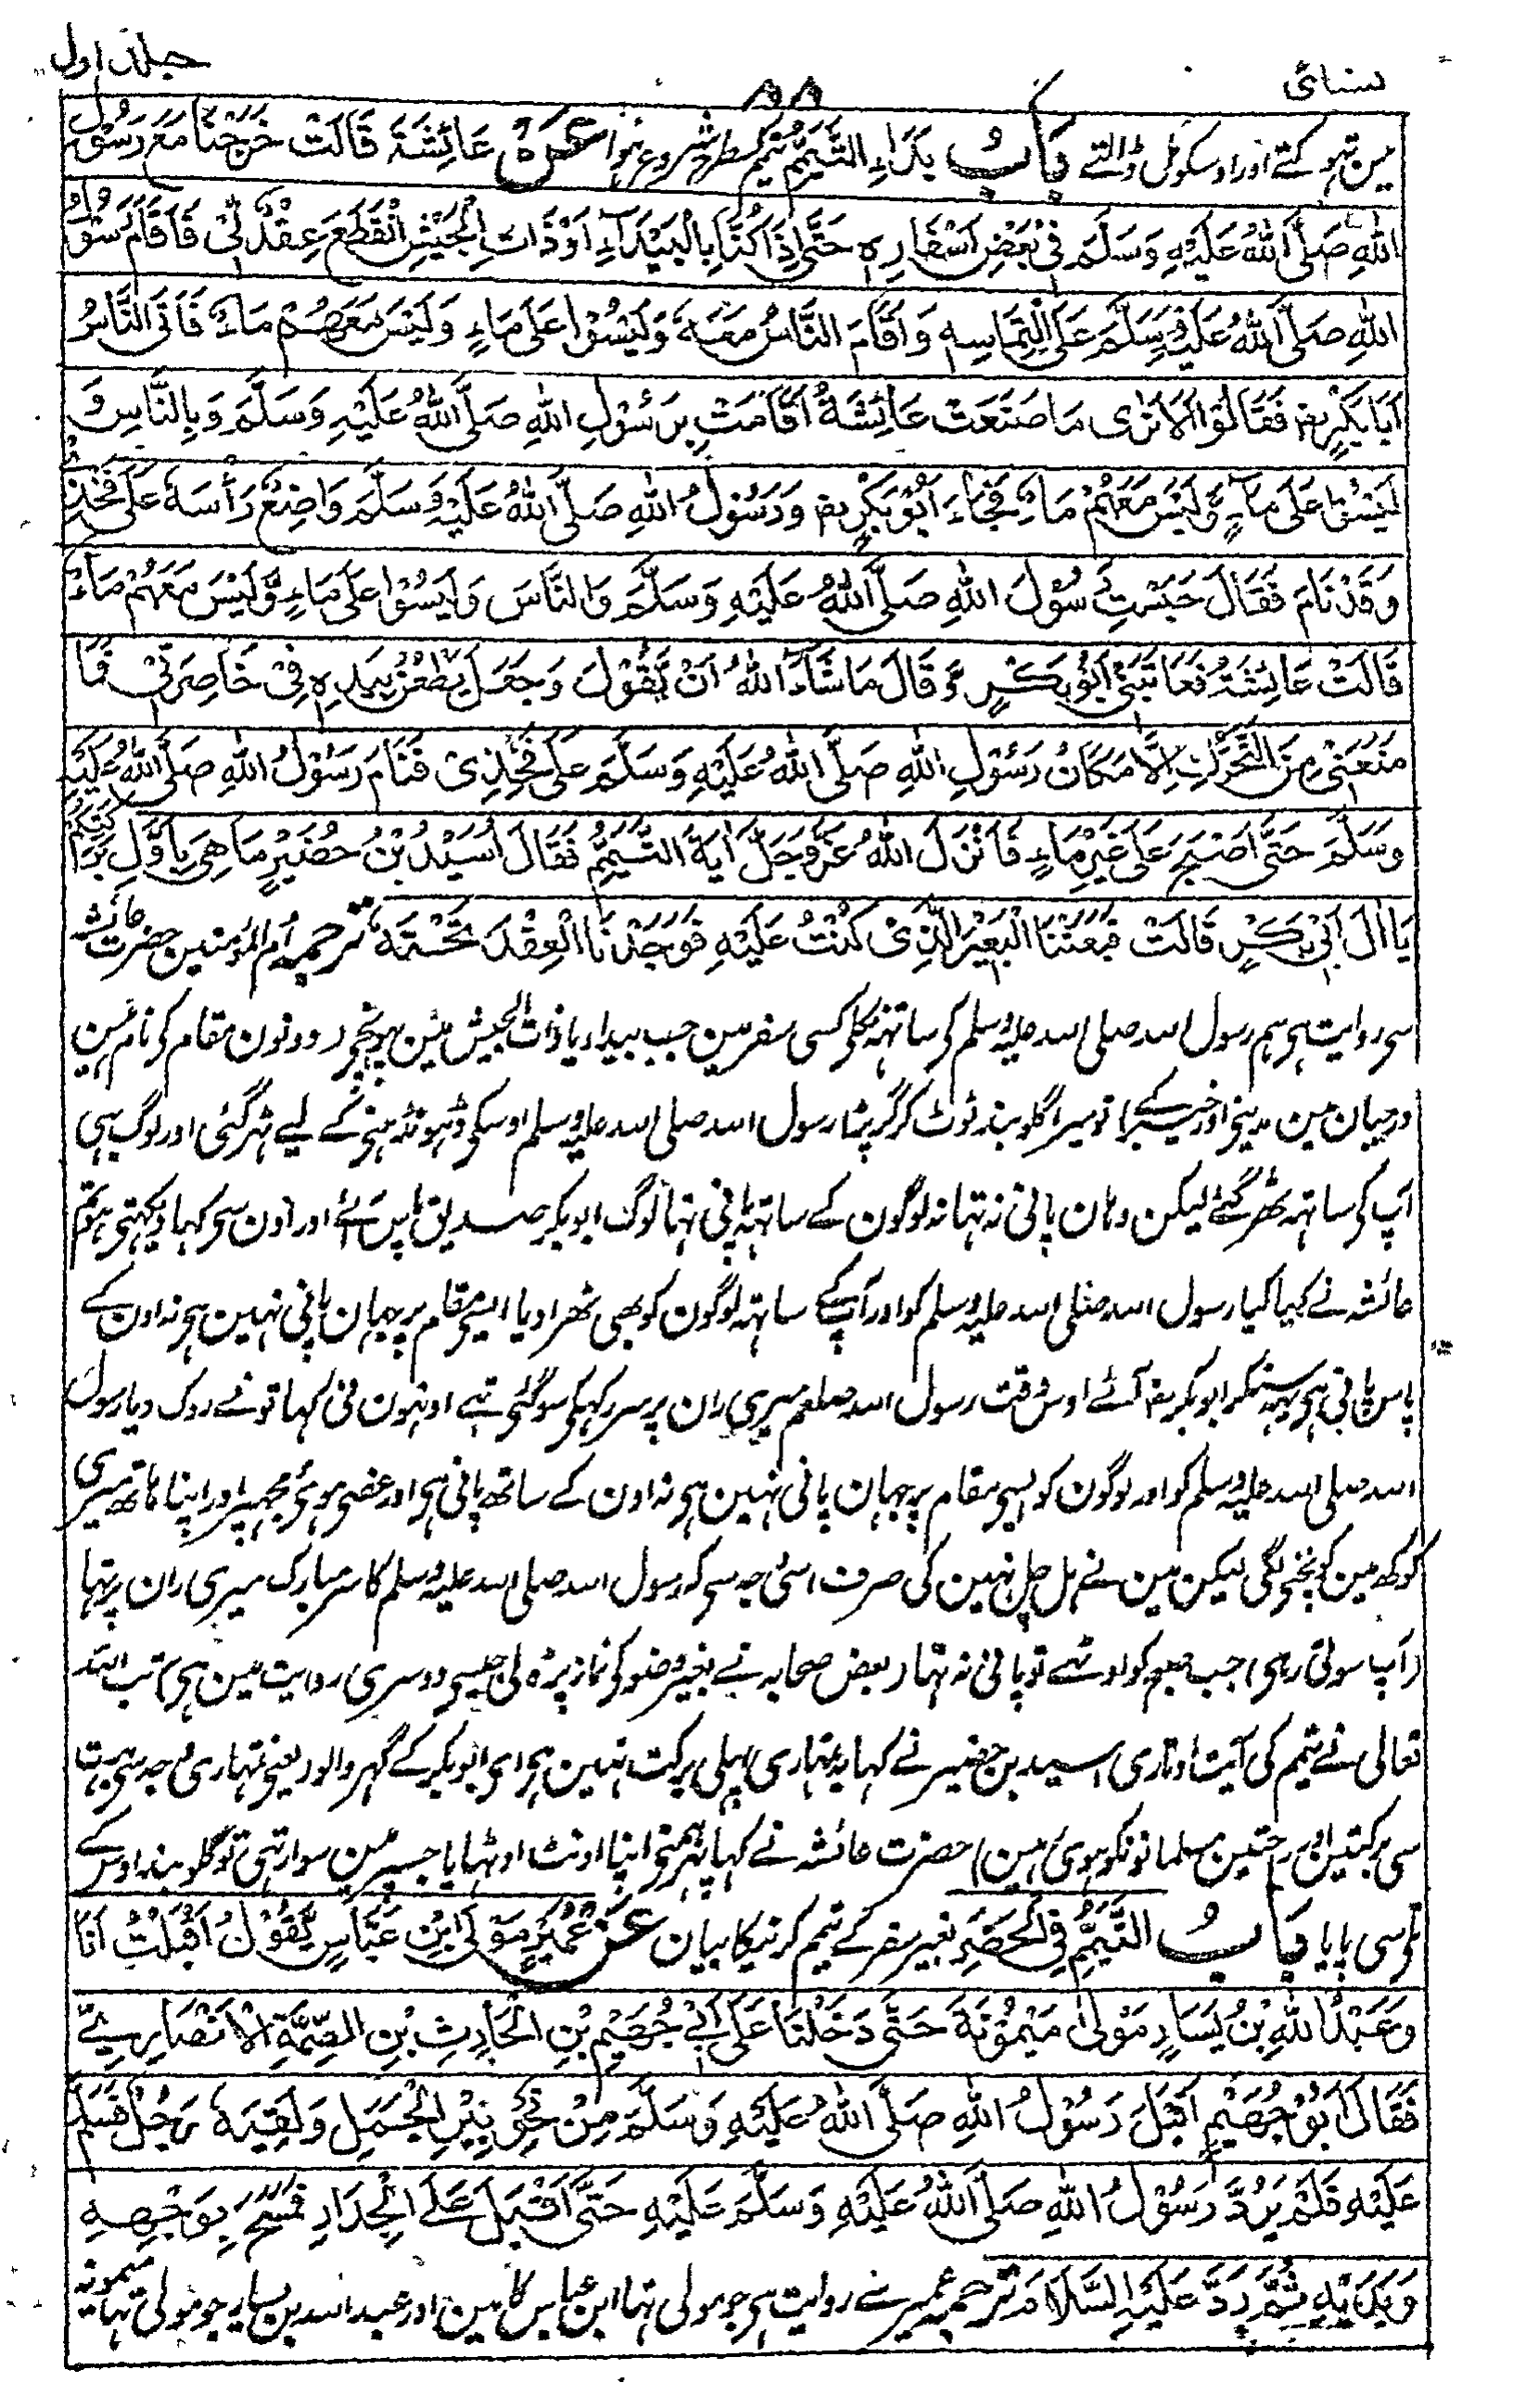 نسائی
۸۸
جلد اول
مین تہوکتے اور اوسکو مل ڈالتے بَابُ بَدْءِ التَّيَمُّمِ تیمم کسطرح شروع ہوا عَنْ عَائِشَةَ قَالَتْ خَرَجْنَا مَعَ رَسُوْلِ
اللّٰهِ صَلَّى اللّٰهُ عَلَيْهِ وَسَلَّمَ فِيْ بَعْضِ اَسْفَارِهِ حَتّٰى اِذَا كُنَّا بِالْبَيْدَاءِ اَوْ ذَاتِ الْجَيْشِ انْقَطَعَ عِقْدٌ لِّيْ فَاَقَامَ رَسُوْلُ
اللّٰهِ صَلَّى اللّٰهُ عَلَيْهِ وَسَلَّمَ عَلَى الْتِمَاسِهِ وَاَقَامَ النَّاسُ مَعَهُ وَلَيْسُوْا عَلٰى مَاءٍ وَلَيْسَ مَعَهُمْ مَاءٌ فَاَتَى النَّاسُ
اَبَا بَكْرٍ رض فَقَالُوْا اَلَا تَرٰى مَا صَنَعَتْ عَائِشَةُ اَقَامَتْ بِرَسُوْلِ اللّٰهِ صَلَّى اللّٰهُ عَلَيْهِ وَسَلَّمَ وَبِالنَّاسِ وَ
لَيْسُوْا عَلٰى مَاءٍ وَّلَيْسَ مَعَهُمْ مَاءٌ فَجَاءَ اَبُوْ بَكْرٍ رض وَرَسُوْلُ اللّٰهِ صَلَّى اللّٰهُ عَلَيْهِ وَسَلَّمَ وَاضِعٌ رَأْسَهُ عَلٰى فَخِذِيْ
وَقَدْ نَامَ فَقَالَ حَبَسْتِ رَسُوْلَ اللّٰهِ صَلَّى اللّٰهُ عَلَيْهِ وَسَلَّمَ وَالنَّاسَ وَلَيْسُوْا عَلٰى مَاءٍ وَّلَيْسَ مَعَهُمْ مَاءٌ
قَالَتْ عَائِشَةُ فَعَاتَبَنِيْ اَبُوْ بَكْرٍ وَّقَالَ مَا شَاءَ اللّٰهُ اَنْ يَّقُوْلَ وَجَعَلَ يَطْعُنُ بِيَدِهِ فِيْ خَاصِرَتِيْ فَمَا
مَنَعَنِيْ مِنَ التَّحَرُّكِ اِلَّا مَكَانُ رَسُوْلِ اللّٰهِ صَلَّى اللّٰهُ عَلَيْهِ وَسَلَّمَ عَلٰى فَخِذِيْ فَنَامَ رَسُوْلُ اللّٰهِ صَلَّى اللّٰهُ عَلَيْهِ
وَسَلَّمَ حَتّٰى اَصْبَحَ عَلٰى غَيْرِ مَاءٍ فَاَنْزَلَ اللّٰهُ عَزَّ وَجَلَّ اٰيَةَ التَّيَمُّمِ فَقَالَ اُسَيْدُ بْنُ حُضَيْرٍ مَا هِيَ بِاَوَّلِ بَرَكَتِكُمْ
يَا اٰلَ اَبِيْ بَكْرٍ قَالَتْ فَبَعَثْنَا الْبَعِيْرَ الَّذِيْ كُنْتُ عَلَيْهِ فَوَجَدْنَا الْعِقْدَ تَحْتَهُ ترجمہ ام المؤمنین حضرت عائشہ
سے روایت ہے ہم رسول اللہ صلی اللہ علیہ وسلم کے ساتھ نکلے کسی سفر مین جب بیدا یا ذات الجیش مین پہونچے ر دونون مقام کے نام ہین
درمیان مین مدینے اور خیبر کے) تو میرا گلوبند ٹوٹ کر گر پڑا رسول اللہ صلی اللہ علیہ وسلم اوسکے ڈہونڈہنے کے لیے ٹہر گئے اور لوگ بہی
آپ کے ساتہ ٹھر گئے لیکن وہان پانی نہ تہا نہ لوگون کے ساتہ پانی تہا لوگ ابو بکر صدیق پاس آئے اور اون سے کہا دیکہتے ہو تم
عائشہ نے کیا کیا رسول اللہ صلی اللہ علیہ وسلم کو اور آپ کے ساتہ لوگون کو بھی ٹھرا دیا ایسے مقام پر جہان پانی نہین ہے نہ اون کے
پاس پانی ہے یہ سنکر ابو بکر رض آئے اوس وقت رسول اللہ صلعم میری ران پر سر رکہکے سو گئے تہے اونہون نے کہا تو نے روک دیا رسول
اللہ صلی اللہ علیہ وسلم کو اور لوگون کو ایسے مقام پر جہان پانی نہین ہے نہ اون کے ساتھ پانی ہے اور غصے ہوئے مجہپر اور اپنا ہاتھ میری
کوکھ مین کونچنے لگے لیکن مین نے ہل چل نہین کی صرف اس وجہ سے کہ رسول اللہ صلی اللہ علیہ وسلم کا سر مبارک میری ران پر تہا
رآپ سوتے رہے) جب صبح کو اوٹھے تو پانی نہ تہا ر بعض صحابہ نے بغیر وضو کے نماز پڑہ لی جیسے دوسری روایت مین ہے) تب اللہ
تعالی نے تیمم کی آیت اوتاری اسید بن حضیر نے کہا یہ تمہاری پہلی برکت نہین ہے اے ابو بکر کے گہر والو ر یعنے تمہاری وجہ سے بہت
سی برکتین اور رحمتین مسلمانونکو ہوئی ہین) حضرت عائشہ نے کہا پہر ہمنے اپنا اونٹ اوٹہایا جسپر مین سوار تہی تو گلوبند اوس کے
تلے سے پایا بَابُ التَّيَمُّمِ فِي الْحَضَرِ بغیر سفر کے تیمم کرنیکا بیان عَنْ عُمَيْرٍ مَوْلَى ابْنِ عَبَّاسٍ يَّقُوْلُ اَقْبَلْتُ اَنَا
وَعَبْدُ اللّٰهِ بْنُ يَسَارٍ مَوْلٰى مَيْمُوْنَةَ حَتّٰى دَخَلْنَا عَلٰى اَبِيْ جُهَيْمِ بْنِ الْحَارِثِ بْنِ الصِّمَّةِ الْاَنْصَارِيِّ
فَقَالَ اَبُوْ جُهَيْمٍ اَقْبَلَ رَسُوْلُ اللّٰهِ صَلَّى اللّٰهُ عَلَيْهِ وَسَلَّمَ مِنْ نَّحْوِ بِيْرِ الْجَمَلِ وَلَقِيَهُ رَجُلٌ فَسَلَّمَ
عَلَيْهِ فَلَمْ يَرُدَّ رَسُوْلُ اللّٰهِ صَلَّى اللّٰهُ عَلَيْهِ وَسَلَّمَ عَلَيْهِ حَتّٰى اَقْبَلَ عَلَى الْجِدَارِ فَمَسَحَ بِوَجْهِهِ
وَيَدَيْهِ ثُمَّ رَدَّ عَلَيْهِ السَّلَامَ ترجمہ عمیر سے روایت ہے جو مولی تہا ابن عباس کا مین اور عبد اللہ بن یسار جو مولی تہا میمونہ